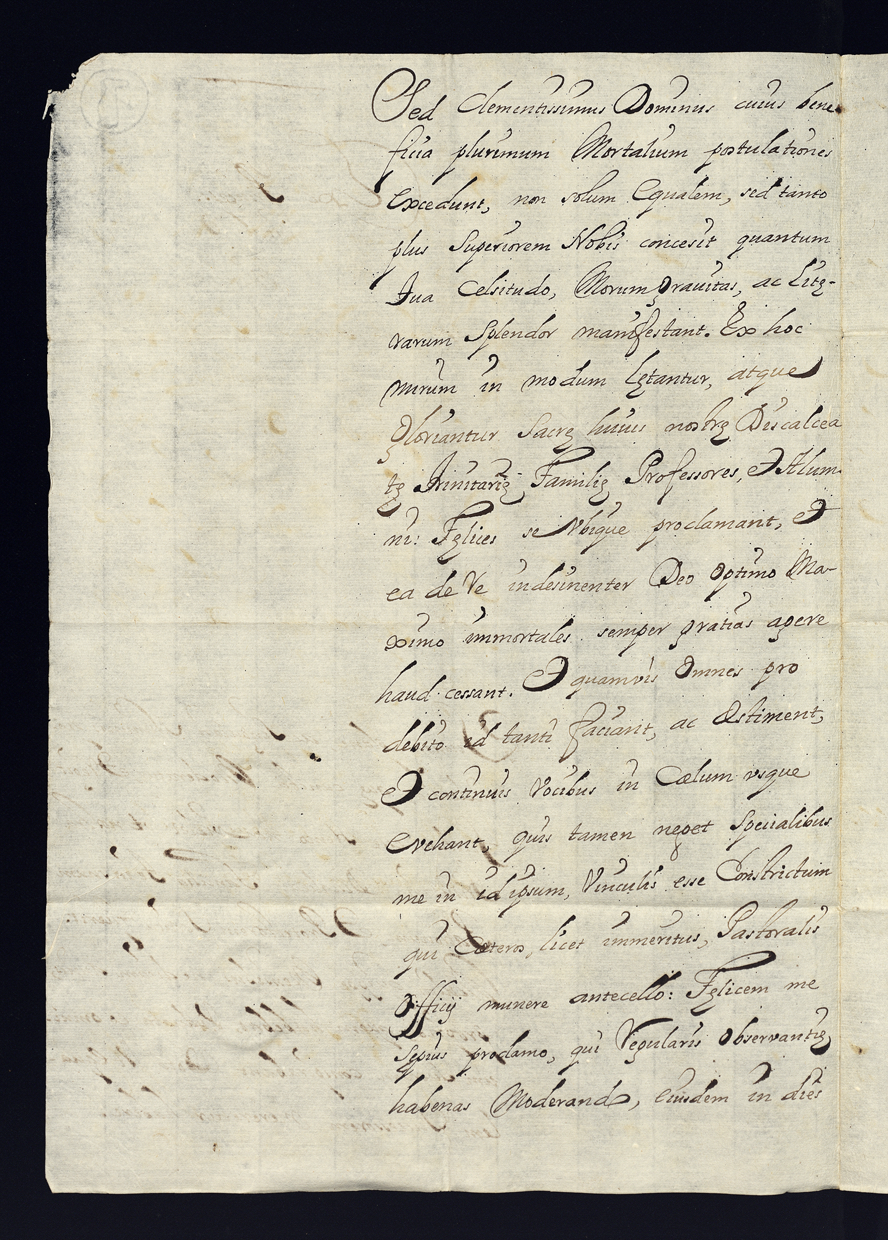 Sed Clementissimus Dominus cuius bene
ficia plurimum Mortalium postulationes
Excedunt, non solum Equalem, sed tanto
plus Superiorem Nobis concesit quantum
Sua Celsitudo, Morum gravitas, ac Litę-
rarum Splendor manifestant. Ex hoc
mirum in modum lętantur, atque
Gloriantur Sacrę huius nostrę Discalcea
tę Trinitarię Familię Professores, Et Alum
ni: Fęlices se Vbique proclamant, Et
ea de Re indesinenter Deo Optimo Ma-
ximo immortales semper gratias agere
haud cessant. Et quamvis Omnes pro
debito id tanti faciant, ac Æstiment,
Et continuis Vocibus in Cœlum vsque
Evehant, quis tamen neget Specialibus
me in id ipsum, Vinculis esse Constrictum
qui Cæteros, licet immeritus, Pastoralis
Officij munere antecello: Fęlicem me
Sępius proclamo, qui Regularis Observantię
habenas Moderando, eiusdem in dies